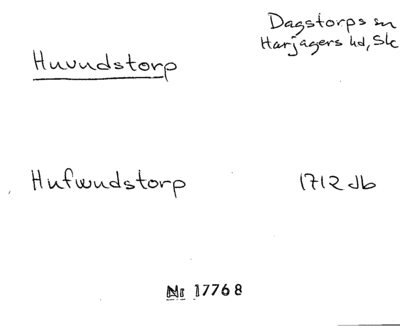 Dagstorps sn
Harjagers hd, Sk
Huvudstorp
Hufwudstorp 1712 Jb
Nr 17768